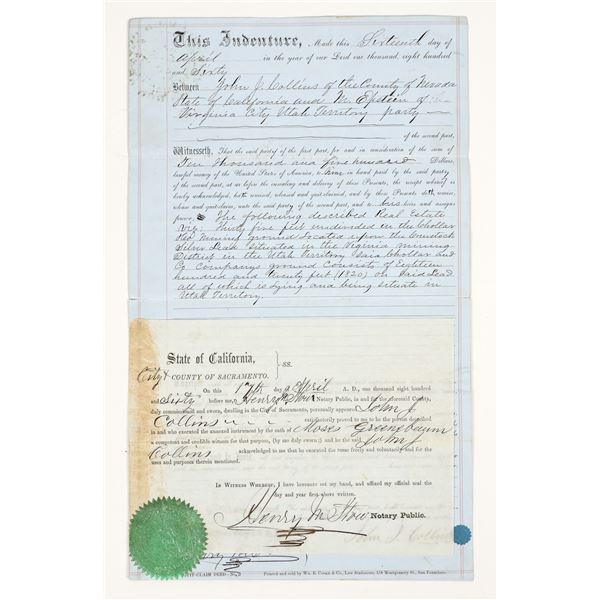 This Indenture, Made this Sixteenth day of
April in the year of our Lord one thousand eight hundred
and Sixty
Between John J. Collins of the County of Nevada
State of California and M. Epstein of
Virginia City Utah Territory party
of the second part,
Witnesseth, That the said party of the first part, for and in consideration of the sum of
Ten thousand and five hundred Dollars,
lawful money of the United States of America, to him in hand paid by the said party
of the second part, at or before the ensealing and delivery of these Presents, the receipt whereof is
hereby acknowledged, hath remised, released and quit-claimed, and by these Presents doth remise,
release and quit-claim, unto the said party of the second part, and to his heirs and assigns
forever, The following described Real Estate
viz: Thirty five feet undivided in the Chollar
Mining ground located upon the Comstock
Silver Lead Situated in the Virginia mining
District in the Utah Territory Said Chollar and
Co Companys ground consists of Eighteen
hundred and twenty feet (1820) on Said Lead
all of which is lying and being situate in
Utah Territory.
State of California,
City & COUNTY OF SACRAMENTO. } SS.
On this 17th day of April A. D., one thousand eight hundred
and Sixty before me, Henry M Stow Notary Public, in and for the aforesaid County,
duly commissioned and sworn, dwelling in the City of Sacramento, personally appeared John J.
Collins satisfactorily proved to me to be the person described
in and who executed the annexed instrument by the oath of Moses Greenebaum
a competent and credible witness for that purpose, (by me duly sworn) and he the said John J
Collins acknowledged to me that he executed the same freely and voluntarily and for the
uses and purposes therein mentioned.
In Witness Whereof, I have hereunto set my hand, and affixed my official seal the
day and year first above written.
Henry M Stow Notary Public.
John J Collins
QUIT-CLAIM DEED
Printed and sold by Wm. B. Cooke & Co., Law Stationers, Montgomery St., San Francisco.